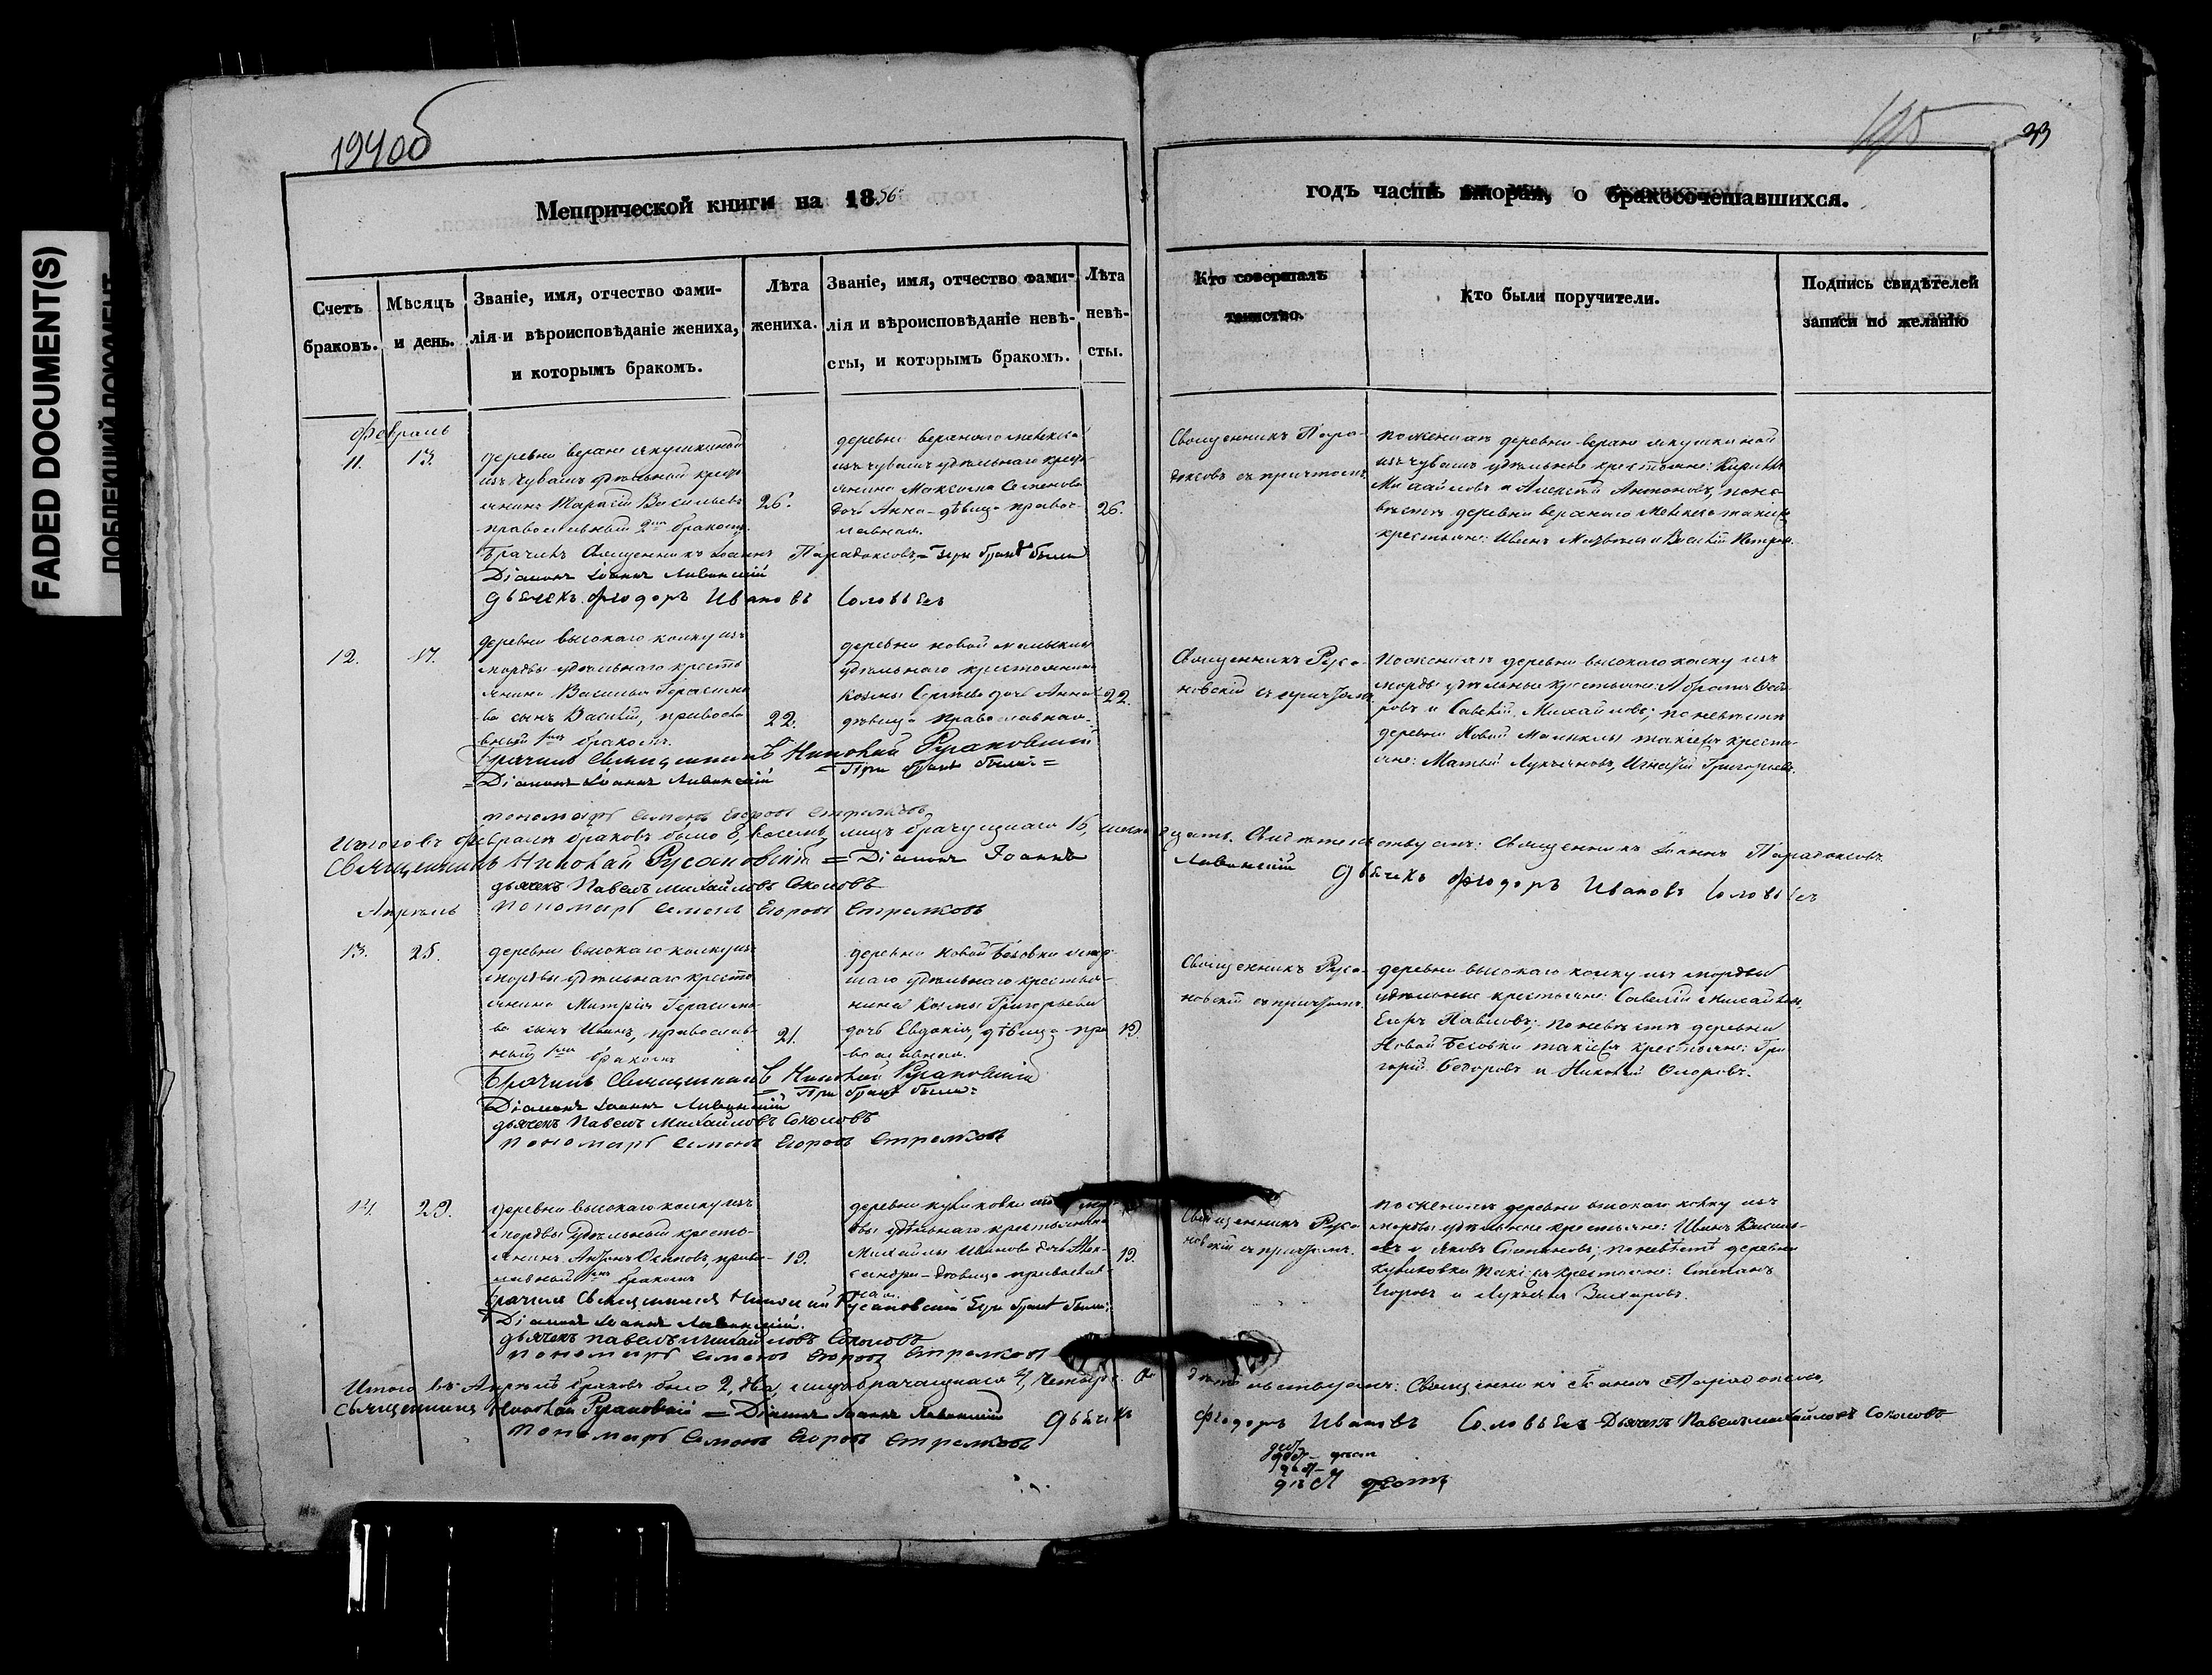 FADED DOCUMENT(S)
194об
23
Метрической книги на 1856
годъ часть вторая, о бракосочетавшихся.
Счетъ браковъ.
Мѣсяцъ и день.
Званіе, имя, отчество фами-
лія и вѣроисповѣданіе жениха,
и которымъ бракомъ.
Лѣта
жениха.
Званіе, имя, отчество фами-
лія и вѣроисповѣданіе невѣ-
сты, и которымъ бракомъ.
Лѣта
невѣ-
сты.
Кто совершалъ
таинство.
Кто были поручители.
Подпись свидѣтелей
записи по желанію
Февраль
11.
13.
деревни верхне якушкиной
изъ чувашъ удѣльный кресть
янинъ Тарасій Васильевъ
православный 2мъ бракомъ
26.
деревни верхняго
изъ чувашъ удѣльнаго кресть
янина Максима Семенова
дочь Анна - дѣвица правос-
лавная.
26.
Священникъ Пара-
доксовъ съ причтомъ
по женихѣ деревни верхне якушкиной
изъ чувашъ удѣльные крестьяне: Кирилъ
Михайловъ и Алексѣй Антоновъ, по не-
вѣстѣ деревни верхняго такіежъ
крестьяне: Иванъ и Василій Петров.
Брачилъ Священникъ Іоаннъ Парадоксовъ = При бракѣ были
Діаконъ Іоаннъ Ливанскій
дьячекъ Ѳіодоръ Ивановъ Соловьевъ
12.
17.
деревни высокаго колку изъ
мордвы удѣльнаго кресть
янина Василья Герасимо
ва сынъ Василій, правосла
вный 1мъ бракомъ.
22.
деревни новой малыклы
удѣльнаго крестьянина
Козмы Сергѣева дочь Анна
дѣвица православная.
22.
Священникъ Руса-
новскій съ причтомъ
по женихѣ деревни высокаго колку изъ
мордвы удѣльные крестьяне: Абрамъ Ѳедо
ровъ и Савелій Михайловъ; по невѣстѣ
деревни Новой Малыклы такіежъ кресть-
яне: Матвѣй Лукьяновъ, Игнатій Григорьевъ.
Брачилъ Священникъ Николай Русановскій
= При бракѣ были: =
= Діаконъ Іоаннъ Ливанскій
пономарь Семенъ Егоровъ Стрелковъ
Итого въ Февралѣ браковъ было 8, восемь, лицъ брачущихся 16, шестнадцать. Свидѣтельствуемъ: Священникъ Іоаннъ Парадоксовъ
Священникъ Николай Русановскій = Діаконъ Іоаннъ Ливанскій дьячекъ Ѳіодоръ Ивановъ Соловьевъ
дьячекъ Павелъ Михайловъ Соколовъ
пономарь Семенъ Егоровъ Стрелковъ
Апрѣль
13.
25.
деревни высокаго колку изъ
мордвы удѣльнаго кресть
янина Митрія Герасимо-
ва сынъ Иванъ, православ
ный 1мъ бракомъ
21.
деревни новой Бесовки
удѣльнаго крестья-
нина Козмы Григорьева
дочь Евдокія, дѣвица пра
вославная.
19.
Священникъ Руса-
новскій съ причтомъ.
деревни высокаго колку изъ мордвы
удѣльные крестьяне: Савелій Михайловъ,
Егоръ Павловъ; по невѣстѣ деревни
Новой Бесовки такіежъ крестьяне: Гри
горій Ѳедоровъ и Николай
Брачилъ Священникъ Николай Русановскій
= При бракѣ были:
Діаконъ Іоаннъ Ливанскій
дьячекъ Павелъ Михайловъ Соколовъ
пономарь Семенъ Егоровъ Стрелковъ
14.
29.
деревни высокаго колку изъ
мордвы удѣльный кресть-
янинъ Антонъ Осиповъ, право-
славный 1мъ бракомъ
19.
деревни куликовки
удѣльнаго крестьянина
Михайлы Иванова дочь Алек-
сандра - дѣвица православ-
ная.
19.
Священникъ Руса-
новскій съ причтомъ.
по женихѣ деревни высокаго колку изъ
мордвы удѣльные крестьяне: Иванъ Василь-
евъ и Яковъ Степановъ; по невѣстѣ деревни
куликовки такіежъ крестьяне: Степанъ
Егоровъ и Лукьянъ Захаровъ.
Брачилъ Священникъ Николай Русановскій При бракѣ были:
Діаконъ Іоаннъ Ливанскій.
дьячекъ Павелъ Михайловъ Соколовъ
пономарь Семенъ Егоровъ Стрелковъ
Итого въ Апрѣлѣ браковъ было 2, два, лицъ брачащихся 4, четыре. Свидѣтельствуемъ: Священникъ Іоаннъ Парадоксовъ,
Священникъ Николай Русановскій = Діаконъ Іоаннъ Ливанскій дьячекъ Ѳіодоръ Ивановъ Соловьевъ Дьячекъ Павелъ Михайловъ Соколовъ
пономарь Семенъ Егоровъ Стрелковъ